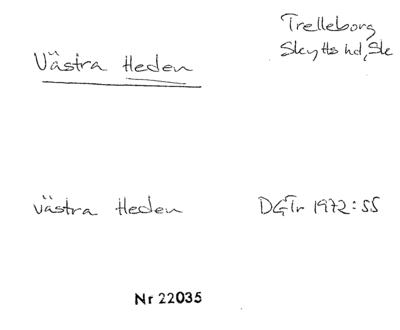 Västra Heden
Trelleborg
Skytts hd, Sk
västra Heden
DGTr 1972:55
Nr 22035